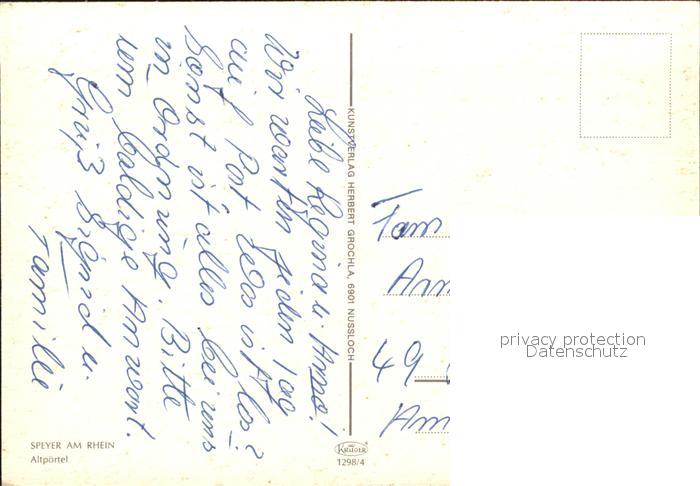 Liebe Regina u. Arno!
Wir warten jeden Tag
auf Post was ist los?
Sonst ist alles bei uns
in Ordnung. Bitte
um baldige Antwort.
Gruß Sigrid u.
Familie
KUNSTVERLAG HERBERT GROCHLA, 6901 NUSSLOCH
Fam
49
privacy protection
Datenschutz
SPEYER AM RHEIN
Altpörtel
KRÜGER
1298/4